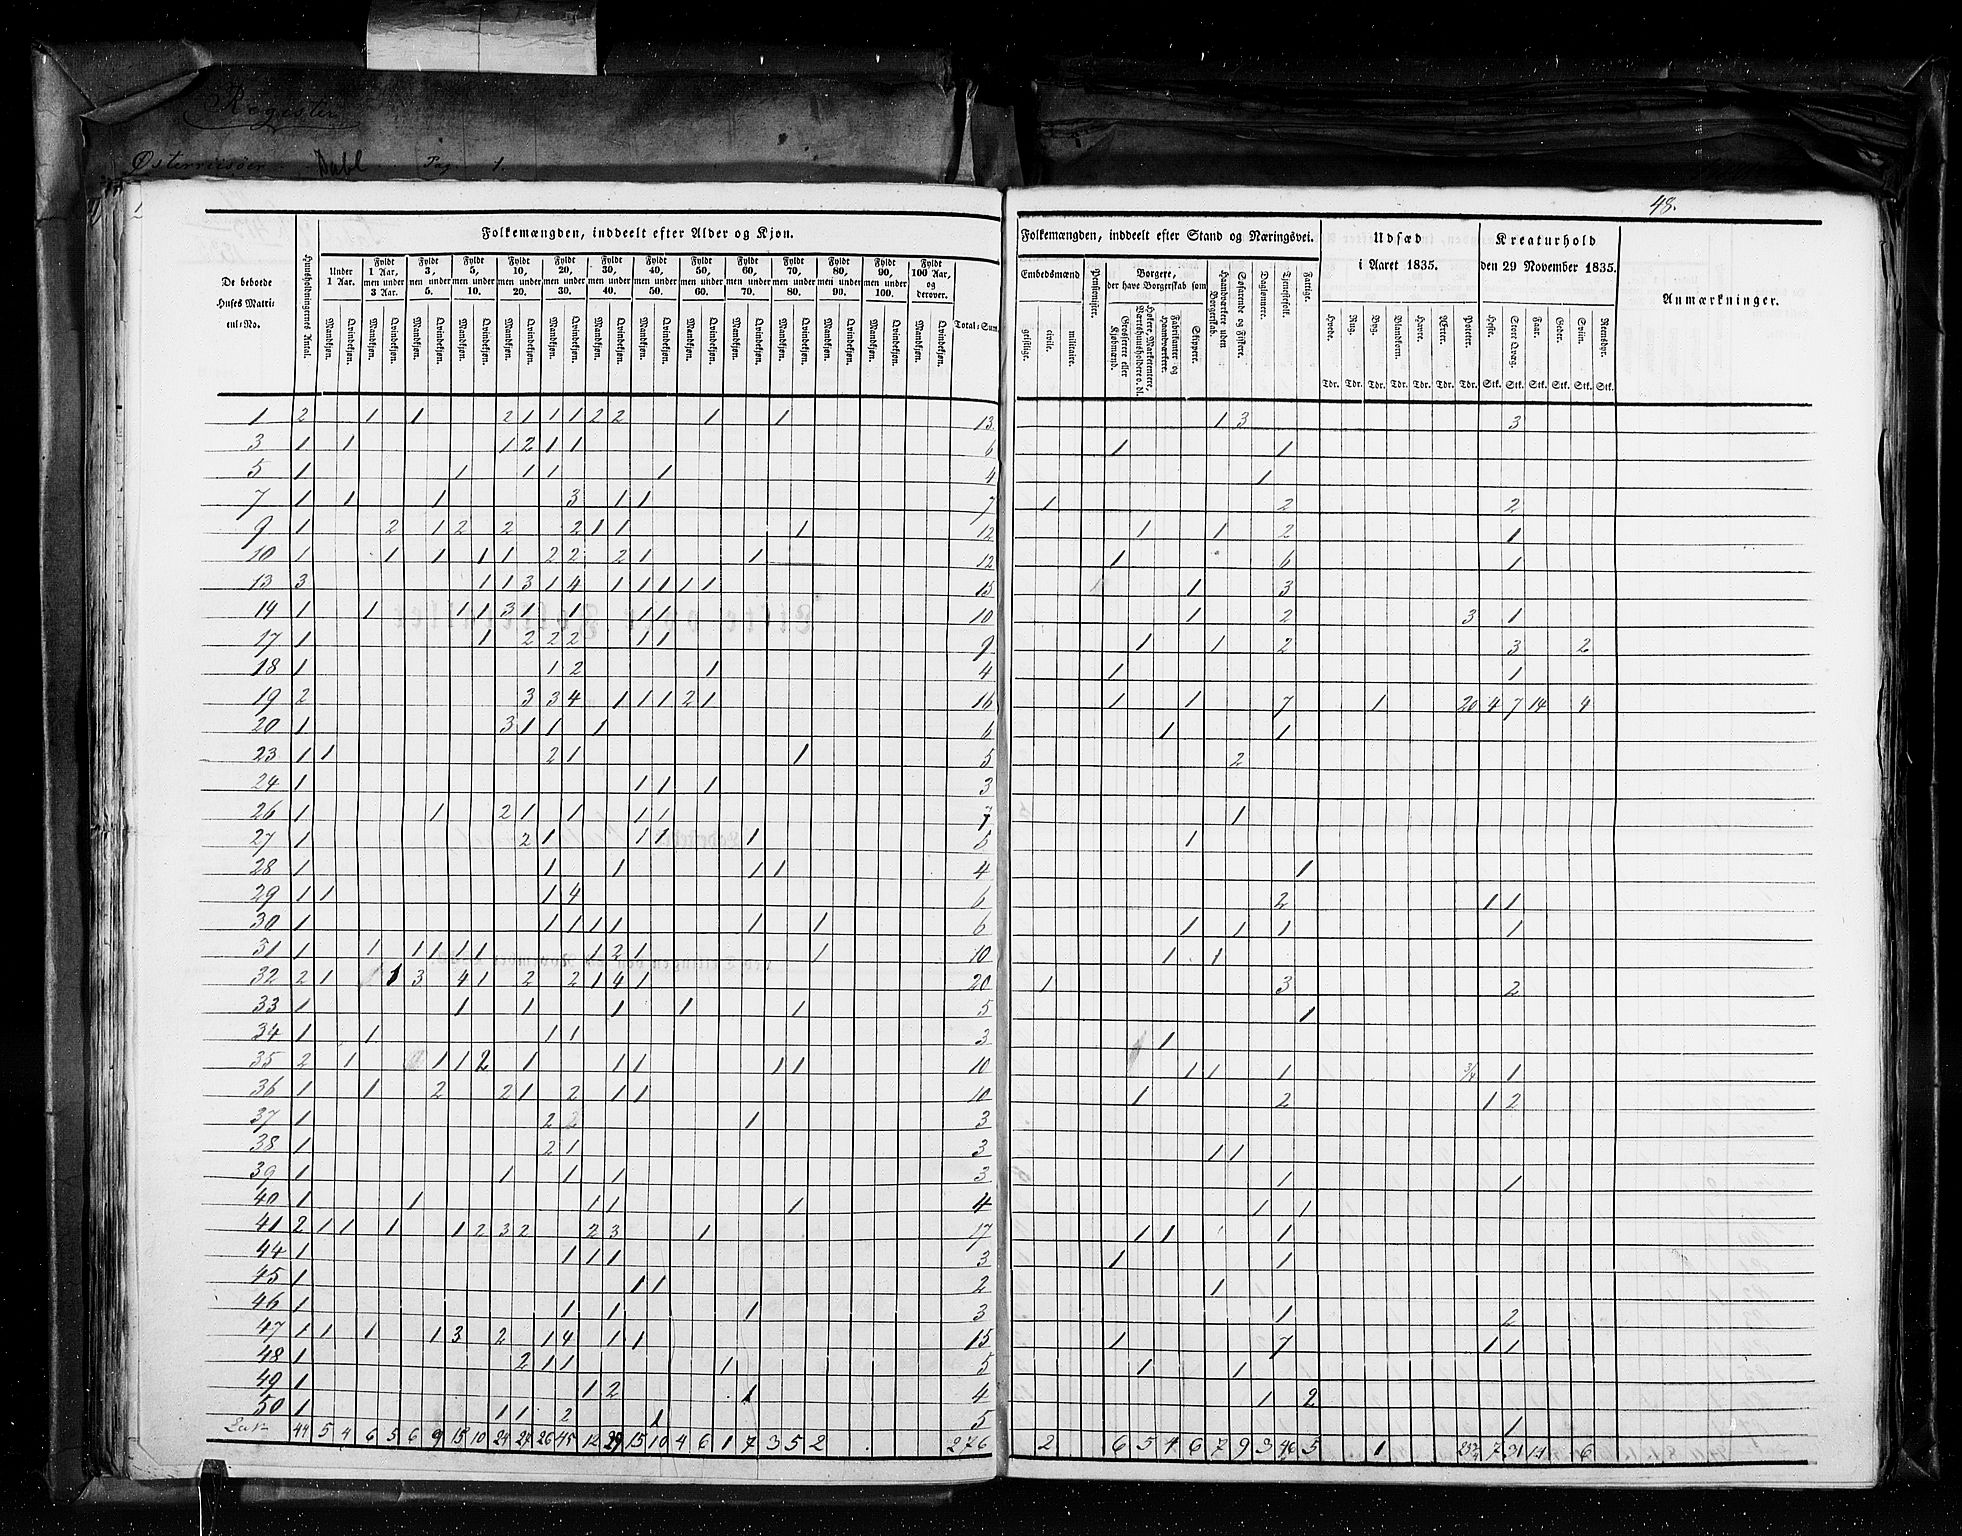 Register
Østerriisøer Dahl Pag 1.
48.
Folkemængden, inddeelt efter Alder og Kjøn.
De beboede Huses Matricul-No.
Huusholdningernes Antal.
Under 1 Aar.
Fyldt 1 Aar, men under 3 Aar.
Fyldt 3, men under 5.
Fyldt 5, men under 10.
Fyldt 10, men under 20.
Fyldt 20, men under 30.
Fyldt 30, men under 40.
Fyldt 40, men under 50.
Fyldt 50, men under 60.
Fyldt 60, men under 70.
Fyldt 70, men under 80.
Fyldt 80, men under 90.
Fyldt 90, men under 100.
Fyldt 100 Aar, og derover.
Mandkjøn. Qvindekjøn. Mandkjøn. Qvindekjøn. Mandkjøn. Qvindekjøn. Mandkjøn. Qvindekjøn. Mandkjøn. Qvindekjøn. Mandkjøn. Qvindekjøn. Mandkjøn. Qvindekjøn. Mandkjøn. Qvindekjøn. Mandkjøn. Qvindekjøn. Mandkjøn. Qvindekjøn. Mandkjøn. Qvindekjøn. Mandkjøn. Qvindekjøn. Mandkjøn. Qvindekjøn. Mandkjøn. Qvindekjøn.
Total-Sum.
1 2 1 1 2 1 1 1 2 2 1 1 13
3 1 1 1 2 1 1 6
5 1 1 1 1 1 4
7 1 1 1 3 1 1 7
9 1 2 1 2 2 2 1 1 1 12
10 1 1 1 1 1 2 2 2 1 1 12
13 3 1 1 3 1 4 1 1 1 1 1 15
14 1 1 1 1 3 1 1 1 1 10
17 1 1 2 2 2 1 1 9
18 1 1 2 1 4
19 2 3 3 4 1 1 1 2 1 16
20 1 3 1 1 1 6
23 1 1 2 1 1 5
24 1 1 1 1 3
26 1 1 2 1 1 1 1 7
27 1 2 1 1 1 1 5
28 1 1 1 1 1 4
29 1 1 1 4 6
30 1 1 1 1 1 1 1 6
31 1 1 1 1 1 1 1 2 1 1 10
32 2 1 1 3 4 1 2 2 1 4 1 20
33 1 1 1 1 1 1 5
34 1 1 1 1 3
35 2 1 1 1 2 1 1 1 1 1 10
36 1 1 2 2 1 2 1 1 10
37 1 2 2 1 3
38 1 2 1 3
39 1 1 1 1 3
40 1 1 1 1 1 4
41 2 1 1 1 1 2 3 2 2 3 1 17
44 1 1 1 1 3
45 1 1 1 2
46 1 1 1 1 3
47 1 1 1 1 3 2 1 4 1 1 15
48 1 2 1 1 1 5
49 1 1 2 1 4
50 1 1 1 2 1 5
Lat. 44 5 4 6 5 6 9 15 10 24 24 26 45 12 29 15 10 4 6 1 7 3 5 2 276
Folkemængden, inddeelt efter Stand og Næringsvei.
Embedsmænd
geistlige. civile. militaire.
Pensionister.
Borgere, der have Borgerskab som
Grosserere eller Kjøbmænd.
Høkere, Marketentere, Værtshuusholdere o. dl.
Fabrikanter og Handværkere.
Skippere.
Handværkere uden Borgerskab.
Søfarende og Fiskere.
Dagsønnere.
Tjenestefolk.
Fattige.
Udsæd i Aaret 1835.
Hvede. Rug. Byg. Blandkorn. Havre. Ærter. Poteter.
Tdr. Tdr. Tdr. Tdr. Tdr. Tdr. Tdr.
Kreaturhold den 29 November 1835.
Heste. Stort Qvæg. Faar. Gieder. Sviin. Rensdyr.
Stk. Stk. Stk. Stk. Stk. Stk.
Anmærkninger.
1 3 3
1 1
1
1 2 2
1 1 2 1
1 6 1
1 3
1 2 3 1
1 1 2 3 2
1 1
1 1 7 1 20 4 7 14 4
1 1
2
1
1
1
2 1 1
1 1 1 1
1 1
1 3 2
1
1
1 1 1 3/4 1
1 2 1 2
1 1
1 1
1 1
1 1 1
1 1
1
1 2
1 7 1 1
1 1
1 2
1
2 6 5 4 6 7 9 3 46 5 1 23¾ 7 31 14 6